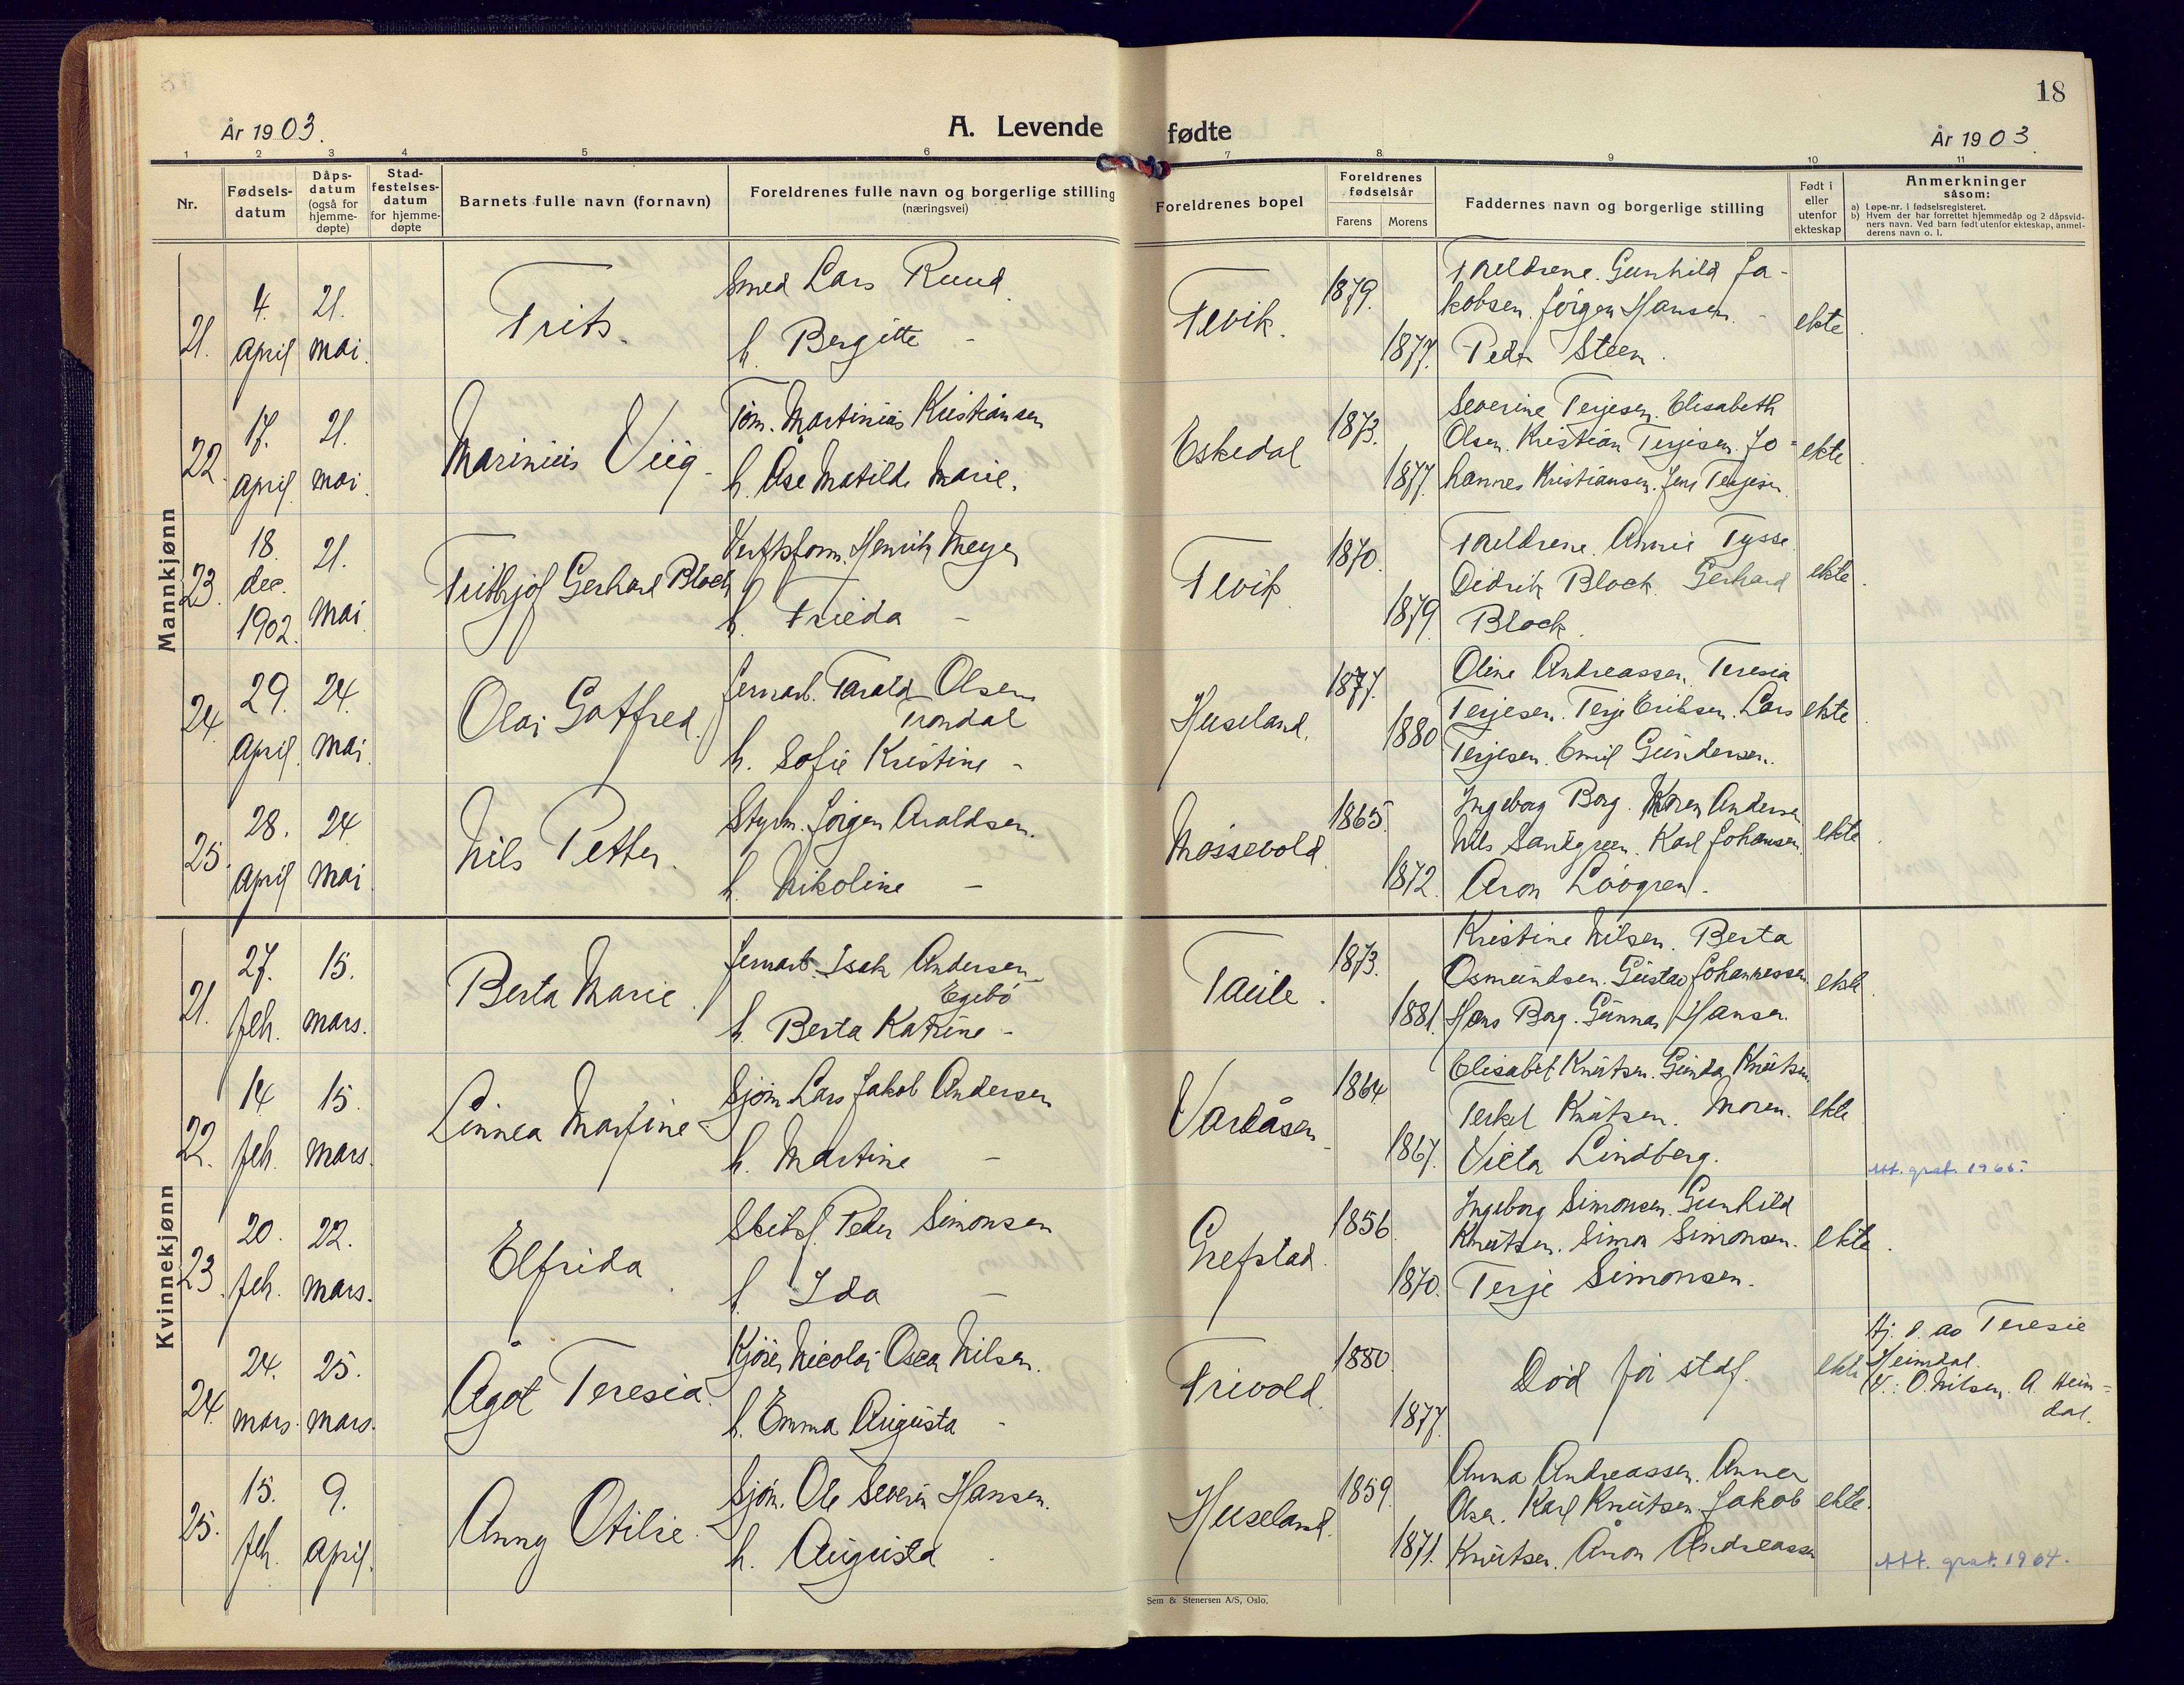 18
År 1903.
A. Levende fødte
År 1903.
1 2 3 4 5 6 7 8 9 10 11
Nr.
Fødsels-
datum
Dåps-
datum
(også for
hjemme-
døpte)
Stad-
festelses-
datum
for hjemme-
døpte
Barnets fulle navn (fornavn)
Foreldrenes fulle navn og borgerlige stilling
(næringsvei)
Foreldrenes bopel
Foreldrenes
fødselsår
Farens Morens
Faddernes navn og borgerlige stilling
Født i
eller
utenfor
ekteskap
Anmerkninger
såsom:
a) Løpe-nr. i fødselsregisteret.
b) Hvem der har forrettet hjemmedåp og 2 dåpsvid-
ners navn. Ved barn født utenfor ekteskap, anmel-
derens navn o. l.
Mannkjønn
21.
4.
april
21.
mai.
Frits.
Smed Lars Ruud.
h. Bergitte -
Fevik.
1879.
1877.
Foreldrene. Gunhild Ja-
kobsen. Jörgen Hansen. -
Peder Steen.
ekte
22.
17.
april.
21.
mai.
Marinius Viig
Töm. Martinius Kristiansen
h. Åse Matilde Marie.
Eskedal
1873.
1877.
Severine Terjesen. Elisabeth
Olsen. Kristian Terjesen. Jo-
hannes Kristiansen. Jens Terjesen
ekte
23.
18.
dec.
1902.
21.
mai.
Frithjof Gerhard Block
Verftsform. Henrik Meyer
h. Frieda -
Fevik
1870.
1879
Foreldrene. Annie Tysse.
Didrik Block. Gerhard
Block.
ekte.
24.
29.
april.
24.
mai.
Olai Gotfred.
Jernarb. Tarald Olsen
Trondal
h. Sofie Kristine -
Huseland.
1877.
1880
Oline Andreassen. Teresia
Terjesen. Terje Eriksen. Lars
Terjesen. Emil Gundersen.
ekte
25.
28.
april
24.
mai
Nils Petter.
Styrm. Jörgen Araldsen.
h. Nikoline -
Mössevold
1865.
1872.
Ingeborg Borg. Karen Andersen
Nils Sandgreen. Karl Johansen.
Aron Löögren.
ekte
Kvinnekjønn
21.
27.
feb.
15.
mars.
Berta Marie.
Jernarb. Isak Andersen
Egebö
h. Berta Katrine -
Faule.
1873.
1881.
Kristine Nilsen. Berta
Osmundsen. Gustav Johannessen.
Hans Borg. Gunnar Hansen.
ekte
22.
14
feb.
15.
mars.
Linnea Martine
Sjöm. Lars Jakob Andersen
h. Martine -
Vardåsen
1864
1867.
Elisabet Knutsen. Gunda Knutsen
Terkel Knutsen. Moren.
Lindberg.
ekte
Att. grat. 1965.
23.
20.
feb.
22.
mars.
Elfrida
Skibsf. Peder Simonsen
h. Ida -
Grefstad.
1856
1870.
Ingeborg Simonsen. Gunhild
Knutsen. Simon Simonsen.
Terje Simonsen.
ekte.
24.
24.
mars.
25.
mars.
Ågot Teresia.
Nicolai Oscar Nilsen.
h. Emma Augusta -
Frivold.
1880
1877.
Död för stadf.
ekte
Hj. d. av Teresie
Heimdal.
V.: O. Nilsen. A. Heim-
dal.
25.
15.
feb.
9.
april.
Anny Otilie.
Sjöm. Ole Severin Hansen.
h. Augusta
Huseland.
1859.
1871.
Anna Andreassen. Anna
Olsen. Karl Knutsen. Jakob
Knutsen. Aron Andreassen
ekte.
Att. grat. 1964.
Sem & Stenersen A/S, Oslo.